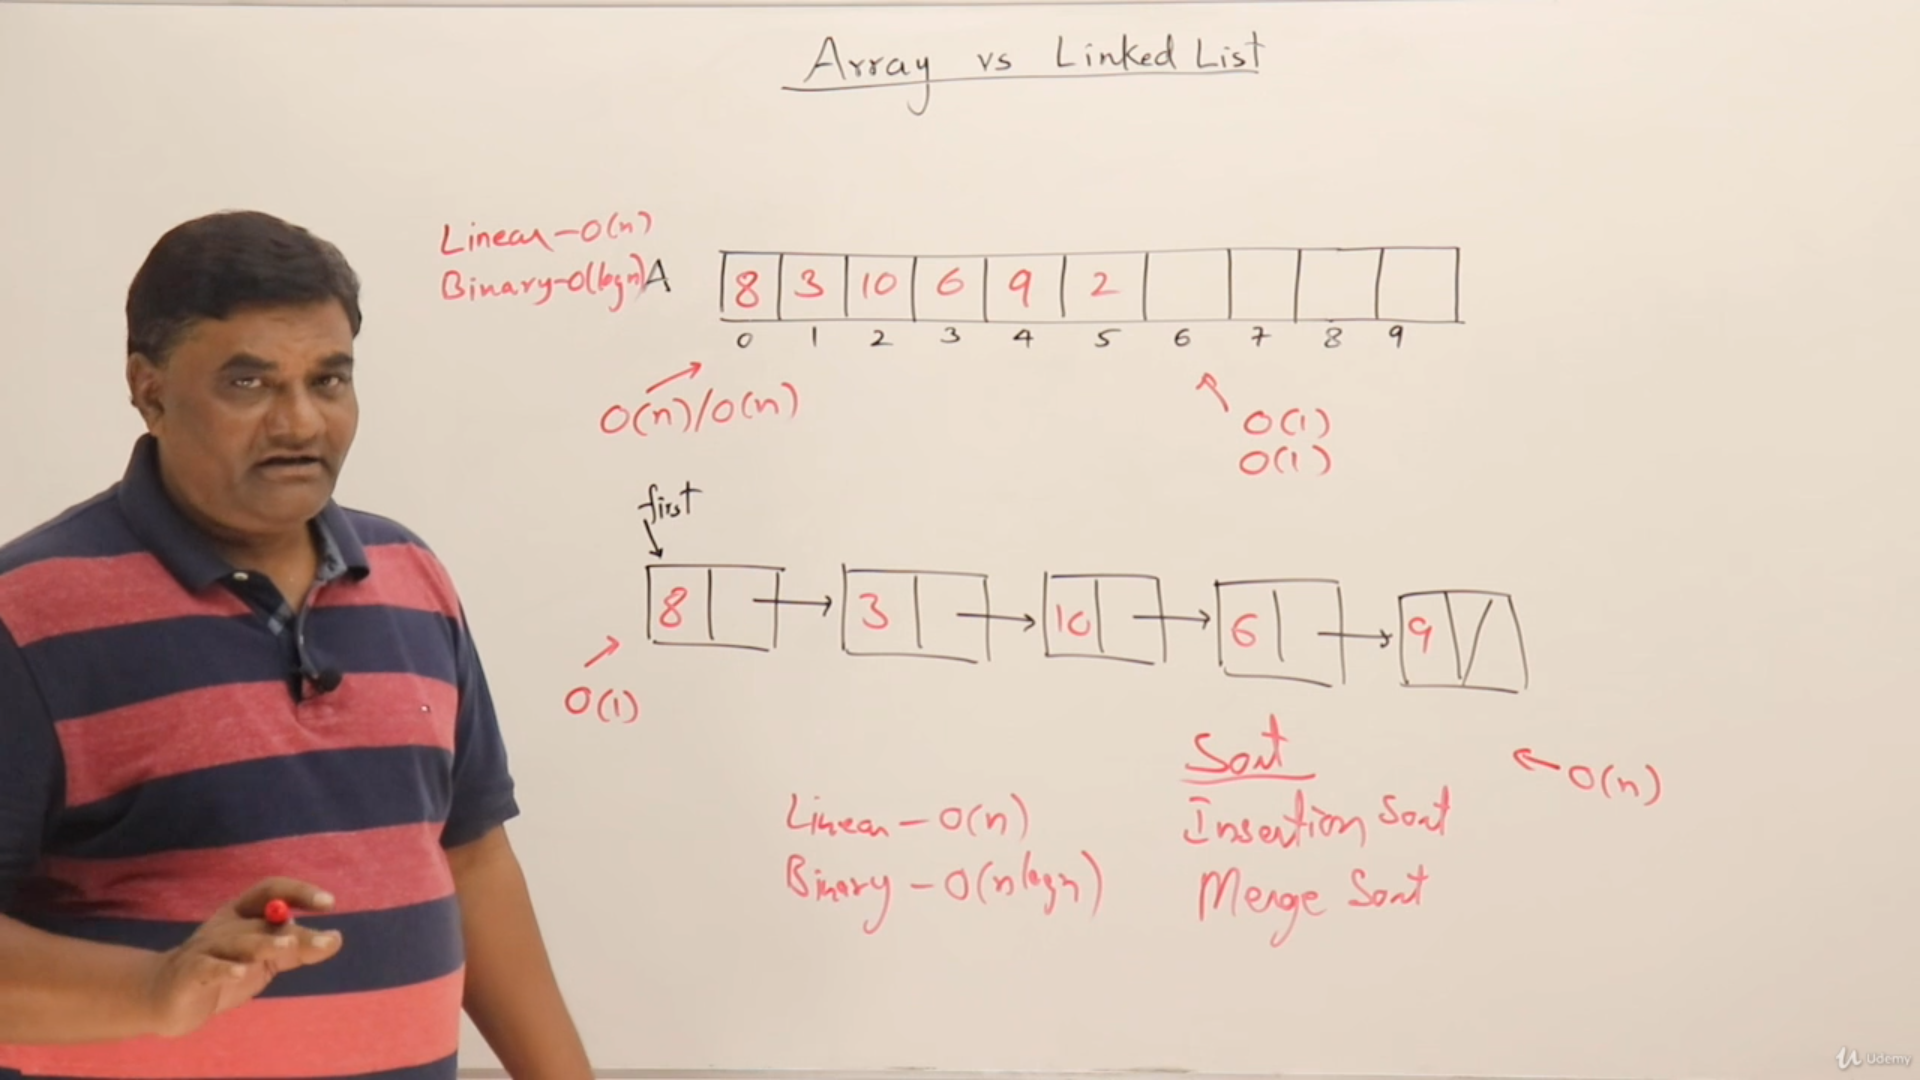 Array vs Linked List
Linear - O(n)
Binary - O(logn) A
8 3 10 6 9 2
0 1 2 3 4 5 6 7 8 9
O(n)/O(n)
O(1)
O(1)
first
8 3 10 6 9
O(1)
Sort
O(n)
Linear - O(n)
Insertion Sort
Binary - O(n logn)
Merge Sort
Udemy